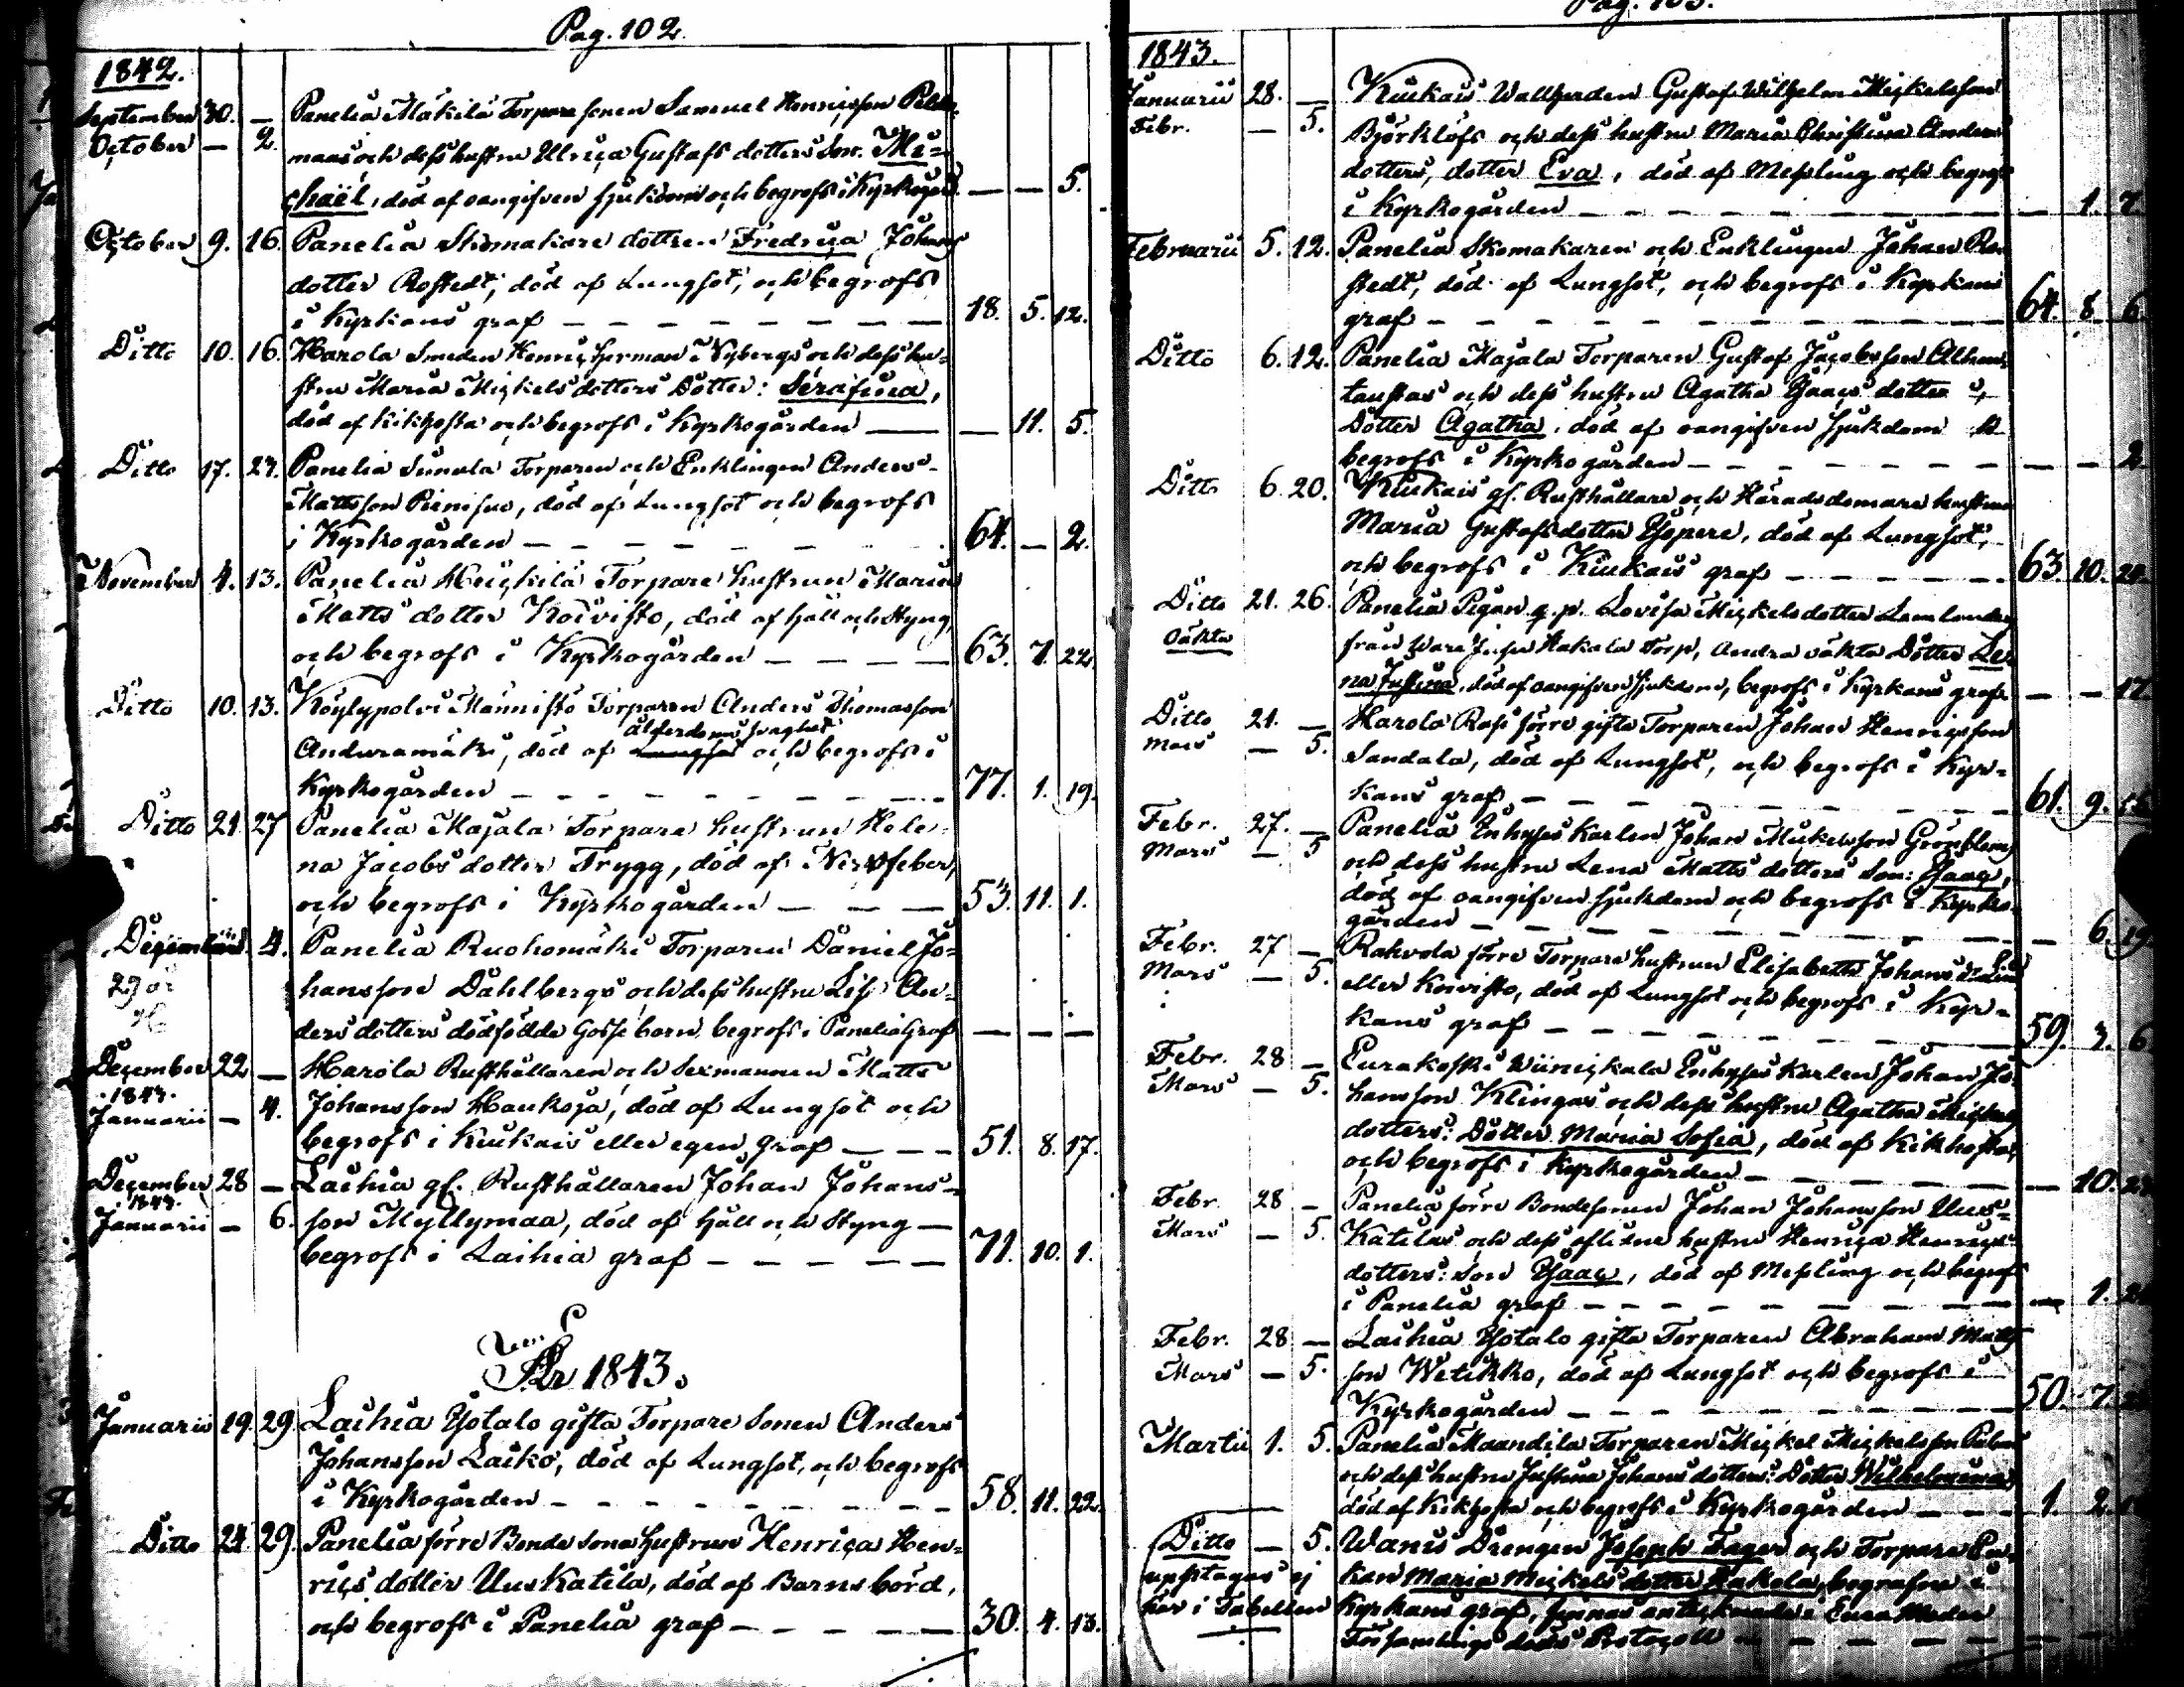 Pag. 102.
1842.
September 30. — Panelia Mäkilä Torpare sonen Samuel Henricsson
October — 2. manns och dess hustru Ulrica Gustafs dotters Son. Mi=
chaël, död af oangifven sjukdom och begrofs i Kyrkogård. — — 5.
October 9. 16. Panelia Skomakare dottren Fredrica Johans
dotter Rostedt, död af Lungsot, och begrofs
i Kyrkans graf — — — 18. 5. 12.
Ditto 10. 16. Harola Smeden Henric Herman Nybergs och dess hu=
stru Maria Mickels dotters Dotter: Serafina,
död af kikhosta och begrofs i Kyrkogården — — 11. 5.
Ditto 17. 27. Panelia Torparen och Enklingen Anders
Mattsson, död af Lungsot och begrofs
i Kyrkogården — — — 64. — 2.
November 4. 13. Panelia Torpare hustrun Maria
Matts dotter Koivisto, död af håll och styng,
och begrofs i Kyrkogården — — — 63. 7. 22.
Ditto 10. 13. Köylypolvi Männistö Torparen Anders Thomasson
ålderdoms svaghet
Anduramäki, död af Lungsot och begrofs i
Kyrkogården — — — 77. 1. 19.
Ditto 21 27 Panelia Majala Torpare hustrun Hele=
na Jacobs dotter Trygg, död af Nervfeber,
och begrofs i Kyrkogården — — — 53. 11. 1.
4. Panelia Ruohomäki Torparen Daniel Jo=
29
hansson Dahlbergs och dess hustru Lisa An=
ders dotters dödfödda Gosse barn begrofs i Panelia Graf — — —
December 22 — Harola Rusthållaren och Sexmannen Matts
1843.
Januarii — 4. Johansson Hauksja, död af Lungsot och
begrofs i Kiukais eller egen graf — — — 51. 8. 17.
December 28 — Laihia gf. Rusthållaren Johan Johans=
1843.
Januarii — 6. son Myllymaa, död af håll och styng —
begrofs i Laihia graf — — — 71. 10. 1.
År 1843.
Januarii 19. 29. Laihia Yötalo gifta Torpare Sonen Anders
Johansson Laiko, död af Lungsot, och begrofs
i Kyrkogården — — — 58. 11. 22.
Ditto 24 29. Panelia förre Bonde Sons hustrun Henrica Hen=
rics dotter Uus Katila, död af Barnsbörd,
och begrofs i Panelia graf — — — 30. 4. 13.
Pag. 103.
1843.
Januarii 28. — Kiukais Gustaf Wilhelm Mickelsson
Febr. — 5. Björklöfs och dess hustru Maria Christina Anders
dotters, dotter Eva, död af Messling och begrofs
i Kyrkogården — — — 1. 7.
Februarii 5. 12. Panelia Skomakaren och Enklingen Johan Ro
stedt, död af Lungsot, och begrofs i Kyrkans
graf — — — 64. 8. 6.
Ditto 6. 12. Panelia Majala Torparen Gustaf Jacobsson
och dess hustru Agatha Isaacs dotters
Dotter Agatha, död af oangifven sjukdom
begrofs i Kyrkogården — — — 2.
Ditto 6 20. Kiukais gf. Rusthållare och Häradsdomare hustrun
Maria Gustafs dotter Yspere, död af Lungsot,
och begrofs i Kiukais graf — — — 63 10.
Ditto 21. 26. Panelia Pigan q. p. Lovisa Mickels dotter
Oäkta från Hakala Torp, andra oäkta Dotter Le
na Justina, död af oangifven sjukdom, begrofs i Kyrkans graf — — 17
Ditto 21. — Harola förre gifta Torparen Johan Henricsson
Mars — 5. Sandala, död af Lungsot, och begrofs i Kyr=
kans graf — — — 61. 9.
Febr. 27. — Panelia Enhyses Karlen Johan
Mars — 5 och dess hustru Lena Matts dotters Son: Isaac,
död af oangifven sjukdom och begrofs i Kyrko=
gården — — — 6. 19
Febr. 27 — Rahvola förre Torpare hustrun Elisabeth Johans
Mars — 5. eller Koivisto, död af Lungsot och begrofs i Kyr=
kans graf — — — 59. 3. 6.
Febr. 28 — Eurakoski Enhyses Karlen Johan Jo
Mars — 5. hansson Klingas och dess hustru Agatha Mickels
dotters: Dotter Maria Sofia, död af Kikhosta,
och begrofs i Kyrkogården — — — 10.
Febr. 28 — Panelia förre Bondesonen Johan Johansson Uus=
Mars — 5. Katilas och dess aflidne hustru Henrica Henrics
dotters: Son Isaac, död af Messling och begrofs
i Panelia graf — — — 1.
Febr. 28 — Laihia Yötalo gifta Torparen Abraham Matts
Mars — 5. son Wetikko, död af Lungsot och begrofs i
Kyrkogården — — — 50. 7.
Martii 1. 5. Panelia Maandila Torparen Mickel Mickelsson
och dess hustru Justina Johans dotters: Dotter Wilhelmina,
död af Kikhosta och begrofs i Kyrkogården — — — 1. 2.
Ditto — 5. Wanis Drengen Joseph Fager och Torpare En=
upptages ej kan Maria Mickels dotter Hakola, begrafne i
här i Tabellen Kyrkans graf, finnas antecknade i Eura Moder
Församlings döds Protocoll — — —